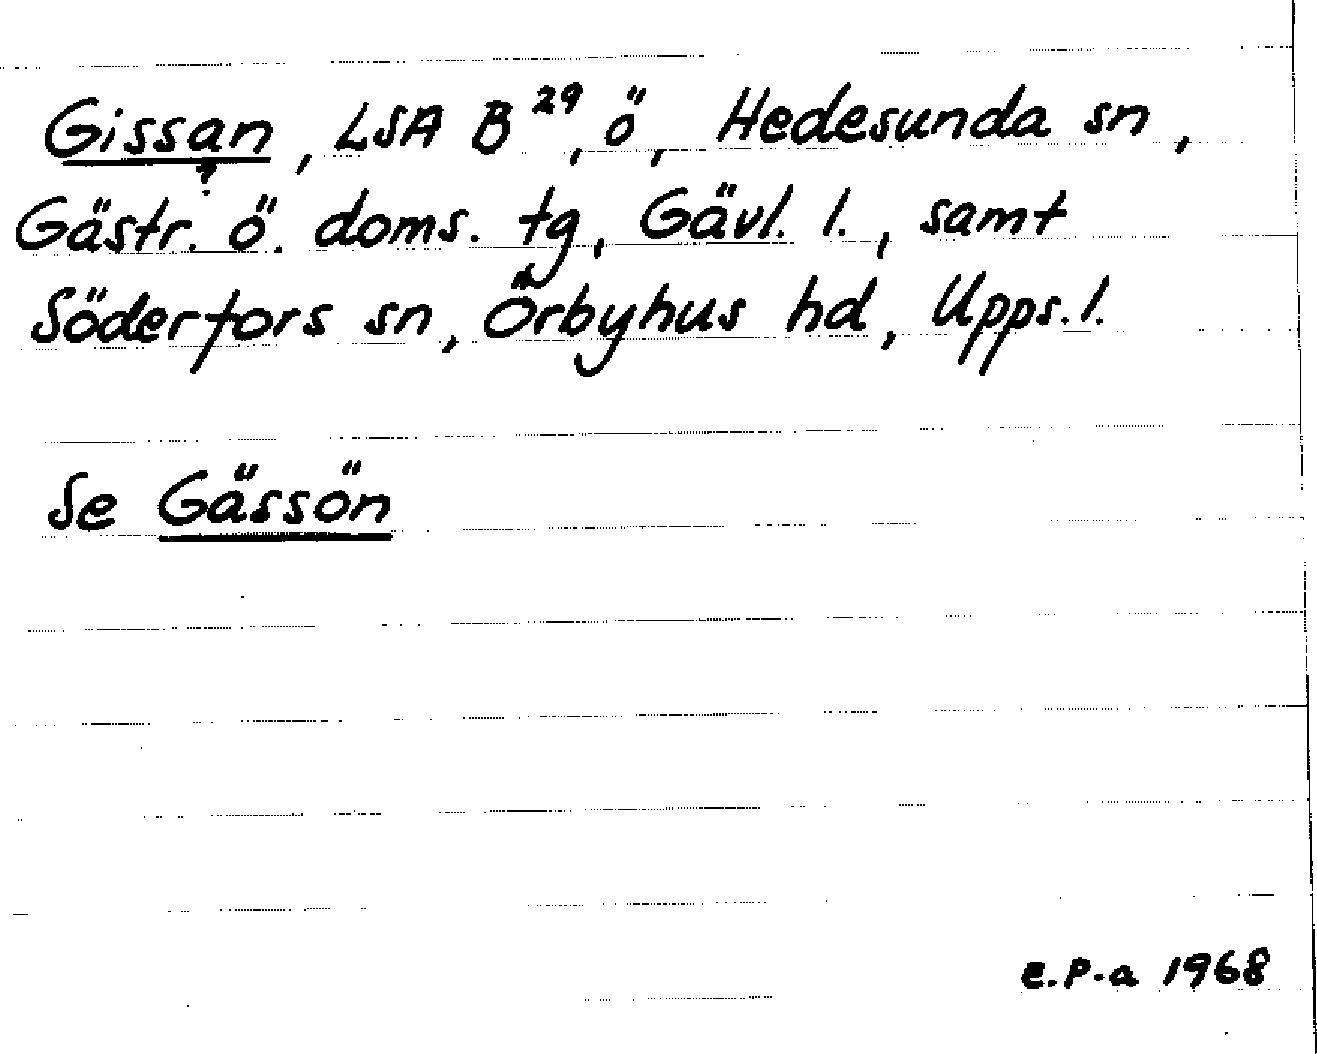 Gissan, LSA B²⁹, ö, Hedesunda sn,
?
Gästr. ö. doms. tg, Gävl. l., samt
Söderfors sn, Örbyhus hd, Upps. l.
Se Gässön
E.P-a 1968